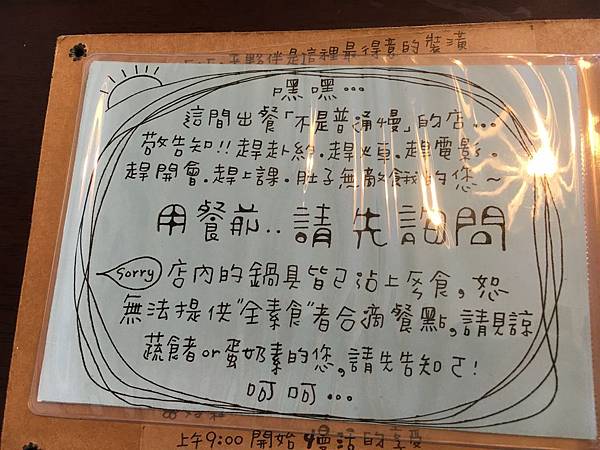 夥伴是這裡最得意的裝潢
嘿嘿...
這間出餐「不是普通慢」的店...
敬告知!!趕赴約.趕火車.趕電影.
趕開會.趕上課.肚子無敵餓的您~
用餐前..請先詢問
Sorry 店內的鍋具皆已沾上葷食,恕
無法提供"全素食"者合適餐點,請見諒
蔬食者or蛋奶素的您,請先告知ㄛ!
呵呵...
上午9:00開始